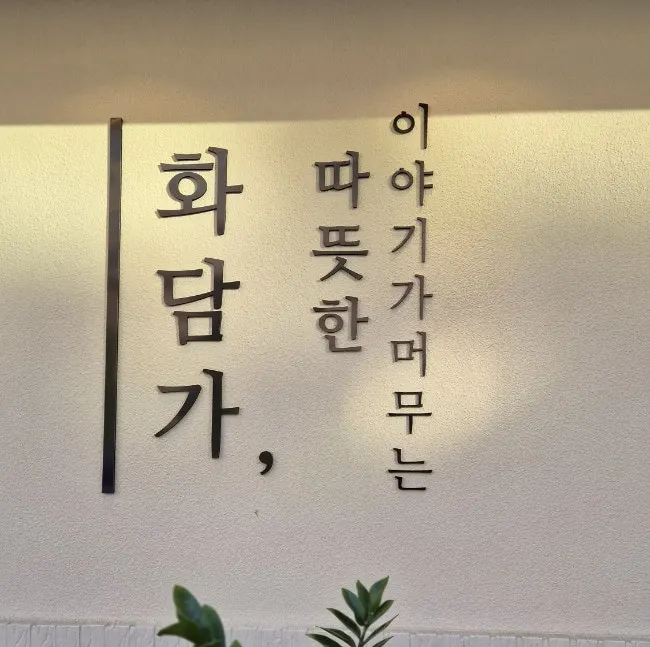 화담가,
따뜻한
이야기가머무는